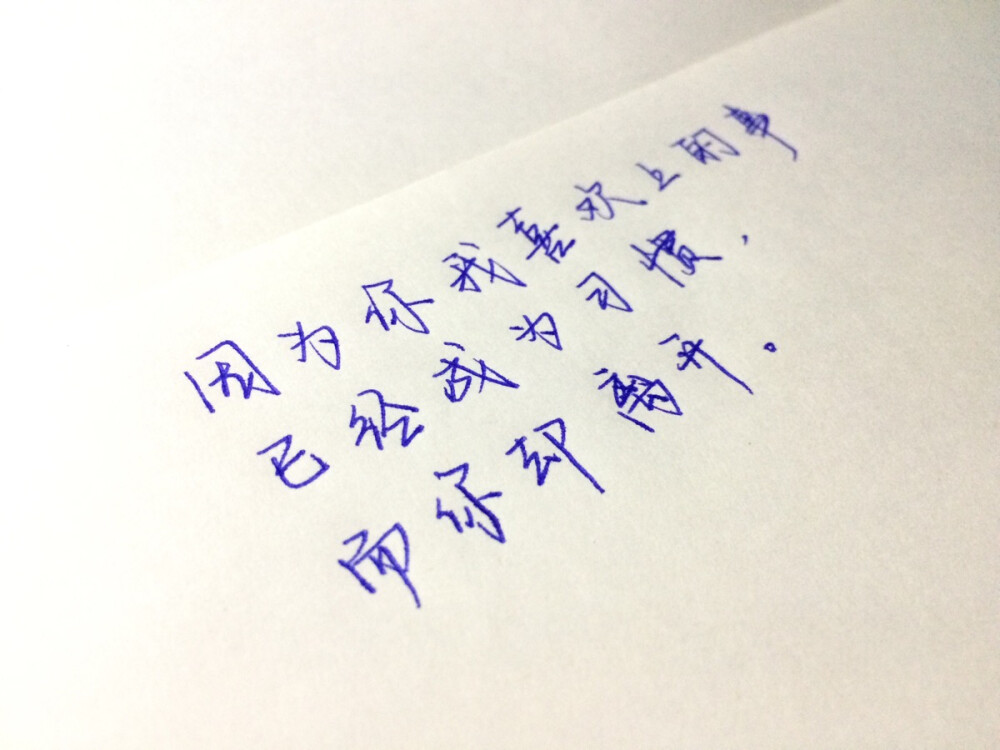 因为你我喜欢上的事
已经成为习惯，
而你却离开。